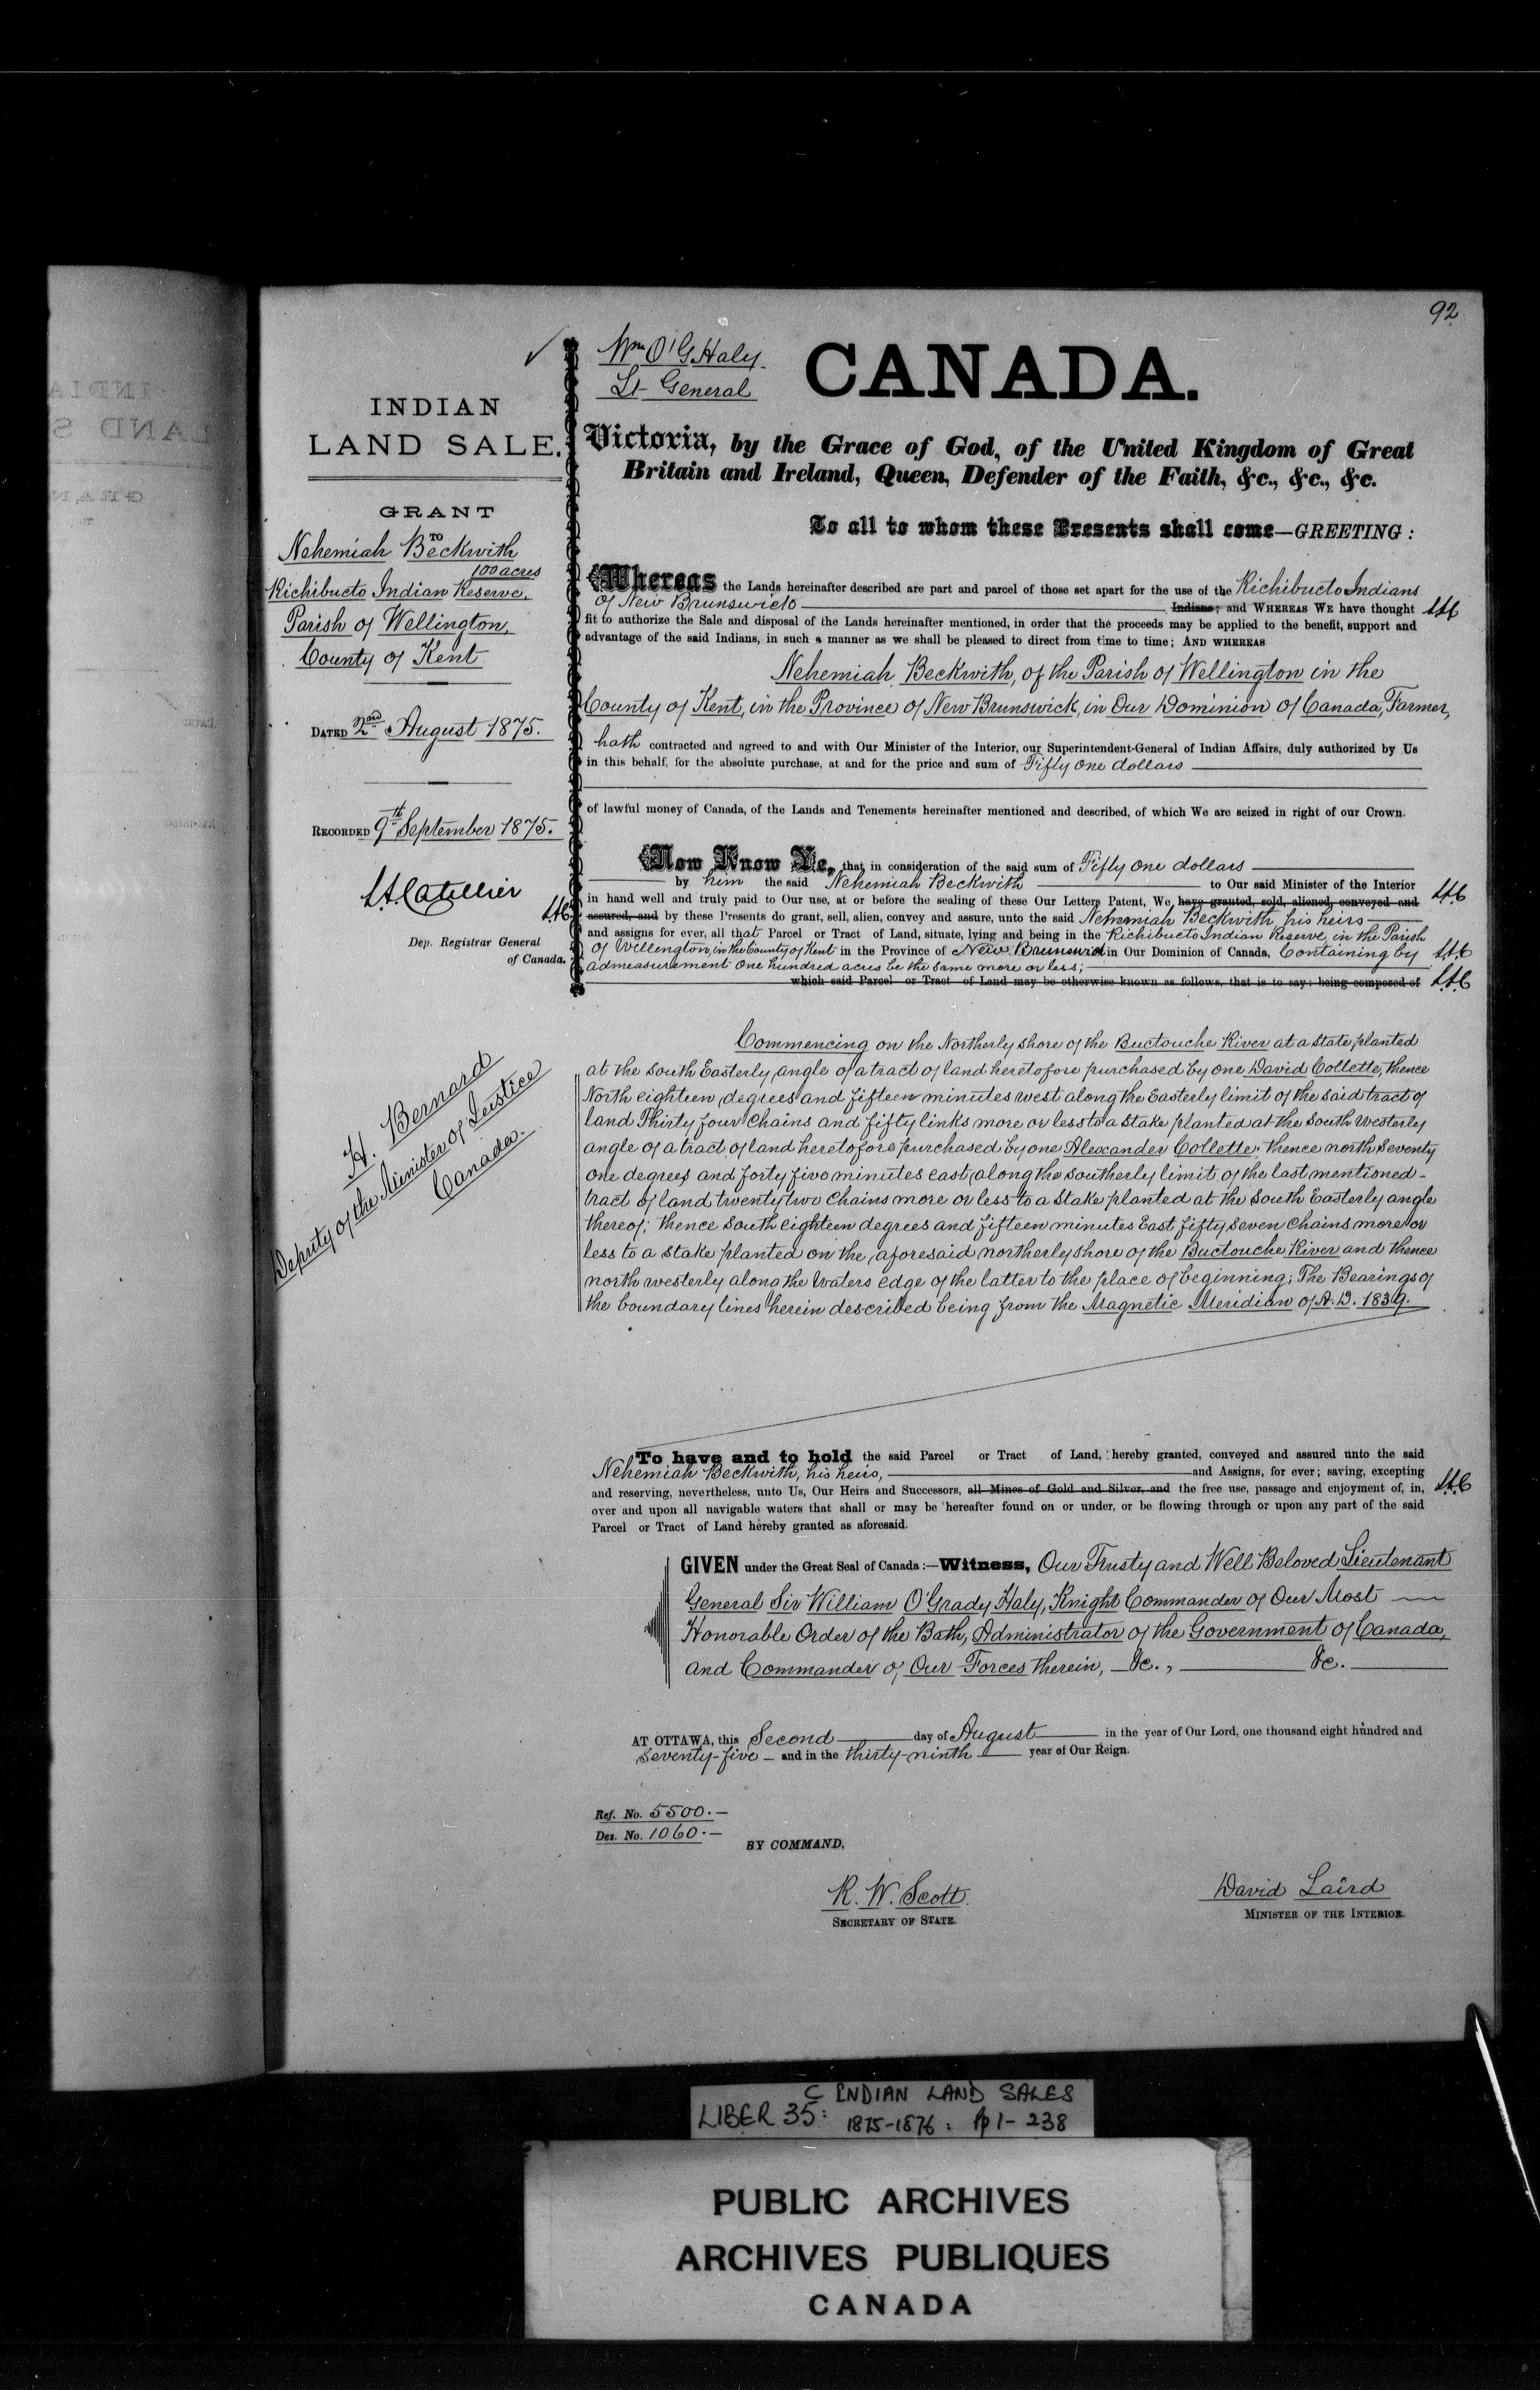 92
Wm O'G Haly.
Lt General
CANADA.
INDIAN
LAND SALE.
GRANT
TO
Nehemiah Beckwith
100 acres
Richibucto Indian Reserve,
Parish of Wellington,
County of Kent
DATED 2nd August 1875.
RECORDED 9th September 1875.
Dep. Registrar General
of Canada.
H. Bernard
Deputy of the Minister of Justice
Canada.
Victoria, by the Grace of God, of the United Kingdom of Great
Britain and Ireland, Queen, Defender of the Faith, &c., &c., &c.
To all to whom these Presents shall come—GREETING :
Whereas the Lands hereinafter described are part and parcel of those set apart for the use of the Richibucto Indians
of New Brunswick Indians; and WHEREAS WE have thought
fit to authorize the Sale and disposal of the Lands hereinafter mentioned, in order that the proceeds may be applied to the benefit, support and
advantage of the said Indians, in such a manner as we shall be pleased to direct from time to time; AND WHEREAS
Nehemiah Beckwith, of the Parish of Wellington in the
County of Kent, in the Province of New Brunswick, in Our Dominion of Canada, Farmer,
hath contracted and agreed to and with Our Minister of the Interior, our Superintendent-General of Indian Affairs, duly authorized by Us
in this behalf, for the absolute purchase, at and for the price and sum of Fifty One dollars
of lawful money of Canada, of the Lands and Tenements hereinafter mentioned and described, of which We are seized in right of our Crown.
Now Know Ye, that in consideration of the said sum of Fifty One dollars
by him the said Nehemiah Beckwith to Our said Minister of the Interior
in hand well and truly paid to Our use, at or before the sealing of these Our Letters Patent, We have granted, sold, aliened, conveyed and
assured, and by these Presents do grant, sell, alien, convey and assure, unto the said Nehemiah Beckwith, his heirs
and assigns for ever, all that Parcel or Tract of Land, situate, lying and being in the Richibucto Indian Reserve, in the Parish
of Wellington, in the County of Kent in the Province of New Brunswick in Our Dominion of Canada, Containing by
admeasurement One hundred acres be the same more or less;
which said Parcel or Tract of Land may be otherwise known as follows, that is to say: being composed of
Commencing on the Northerly shore of the Buctouche River at a stake planted
at the South Easterly angle of a tract of land heretofore purchased by one David Collette, thence
North eighteen degrees and fifteen minutes west along the Easterly limit of the said tract of
land Thirty four chains and fifty links more or less to a stake planted at the South Westerly
angle of a tract of land heretofore purchased by one Alexander Collette; thence north Seventy
one degrees and forty five minutes east along the Southerly limit of the last mentioned
tract of land twenty two chains more or less to a Stake planted at the South Easterly angle
thereof; thence South eighteen degrees and fifteen minutes East fifty seven chains more or
less to a stake planted on the aforesaid northerly shore of the Buctouche River and thence
north westerly along the waters edge of the latter to the place of beginning; The Bearings of
the boundary lines herein described being from the Magnetic Meridian of A.D. 1839.
To have and to hold the said Parcel or Tract of Land, hereby granted, conveyed and assured unto the said
Nehemiah Beckwith, his heirs, and Assigns, for ever; saving, excepting
and reserving, nevertheless, unto Us, Our Heirs and Successors, all Mines of Gold and Silver, and the free use, passage and enjoyment of, in,
over and upon all navigable waters that shall or may be hereafter found on or under, or be flowing through or upon any part of the said
Parcel or Tract of Land hereby granted as aforesaid.
GIVEN under the Great Seal of Canada :—Witness, Our Trusty and Well Beloved Lieutenant
General Sir William O'Grady Haly, Knight Commander of Our Most
Honorable Order of the Bath, Administrator of the Government of Canada,
and Commander of Our Forces therein, &c., &c.
AT OTTAWA, this Second day of August in the year of Our Lord, one thousand eight hundred and
seventy-five and in the thirty-ninth year of Our Reign.
Ref. No. 5500.—
Des. No. 1060.—
BY COMMAND,
R. W. Scott.
SECRETARY OF STATE.
David Laird
MINISTER OF THE INTERIOR.
C INDIAN LAND SALES
LIBER 35: 1875-1876: pp 1-238
PUBLIC ARCHIVES
ARCHIVES PUBLIQUES
CANADA